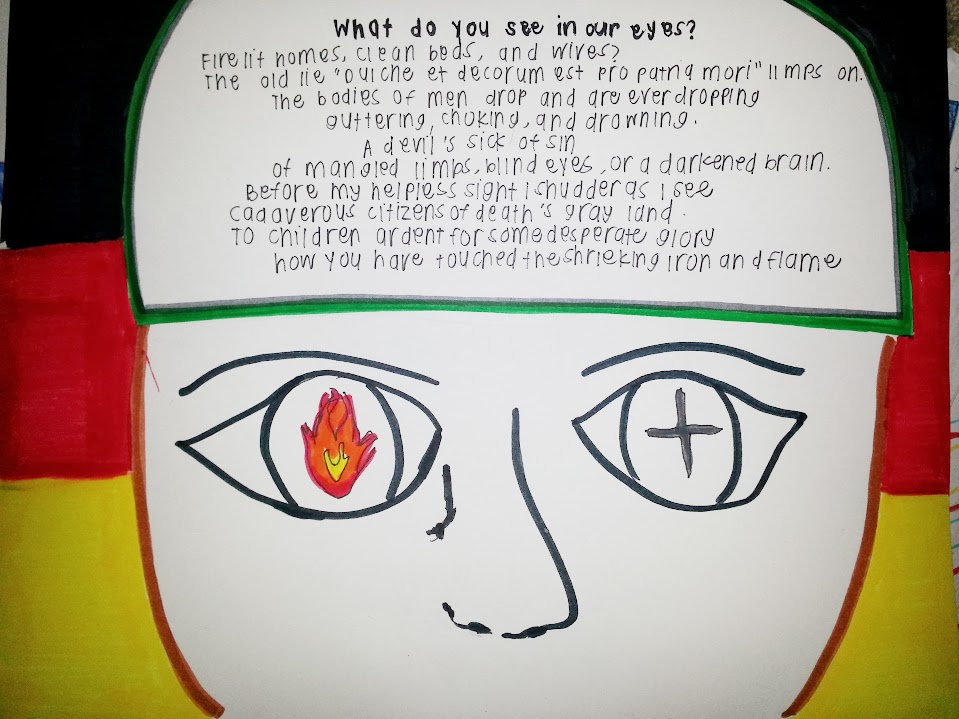 What do you see in our eyes?
Fire lit homes, clean beds, and wives?
The old lie "Dulche et decorum est pro patria mori" limps on.
The bodies of men drop and are ever dropping
guttering, choking, and drowning.
A devil's sick of sin
of mangled limps, blind eyes, or a darkened brain.
Before my helpless sight I shudder as I see
cadaverous citizens of death's gray land.
To children ardent for some desperate glory
how you have touched the shrieking iron and flame